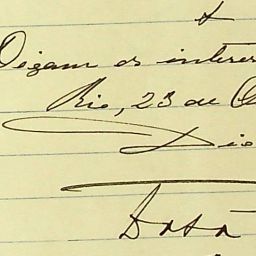 Digam os inter
Rio, 23 de
Dio
Data